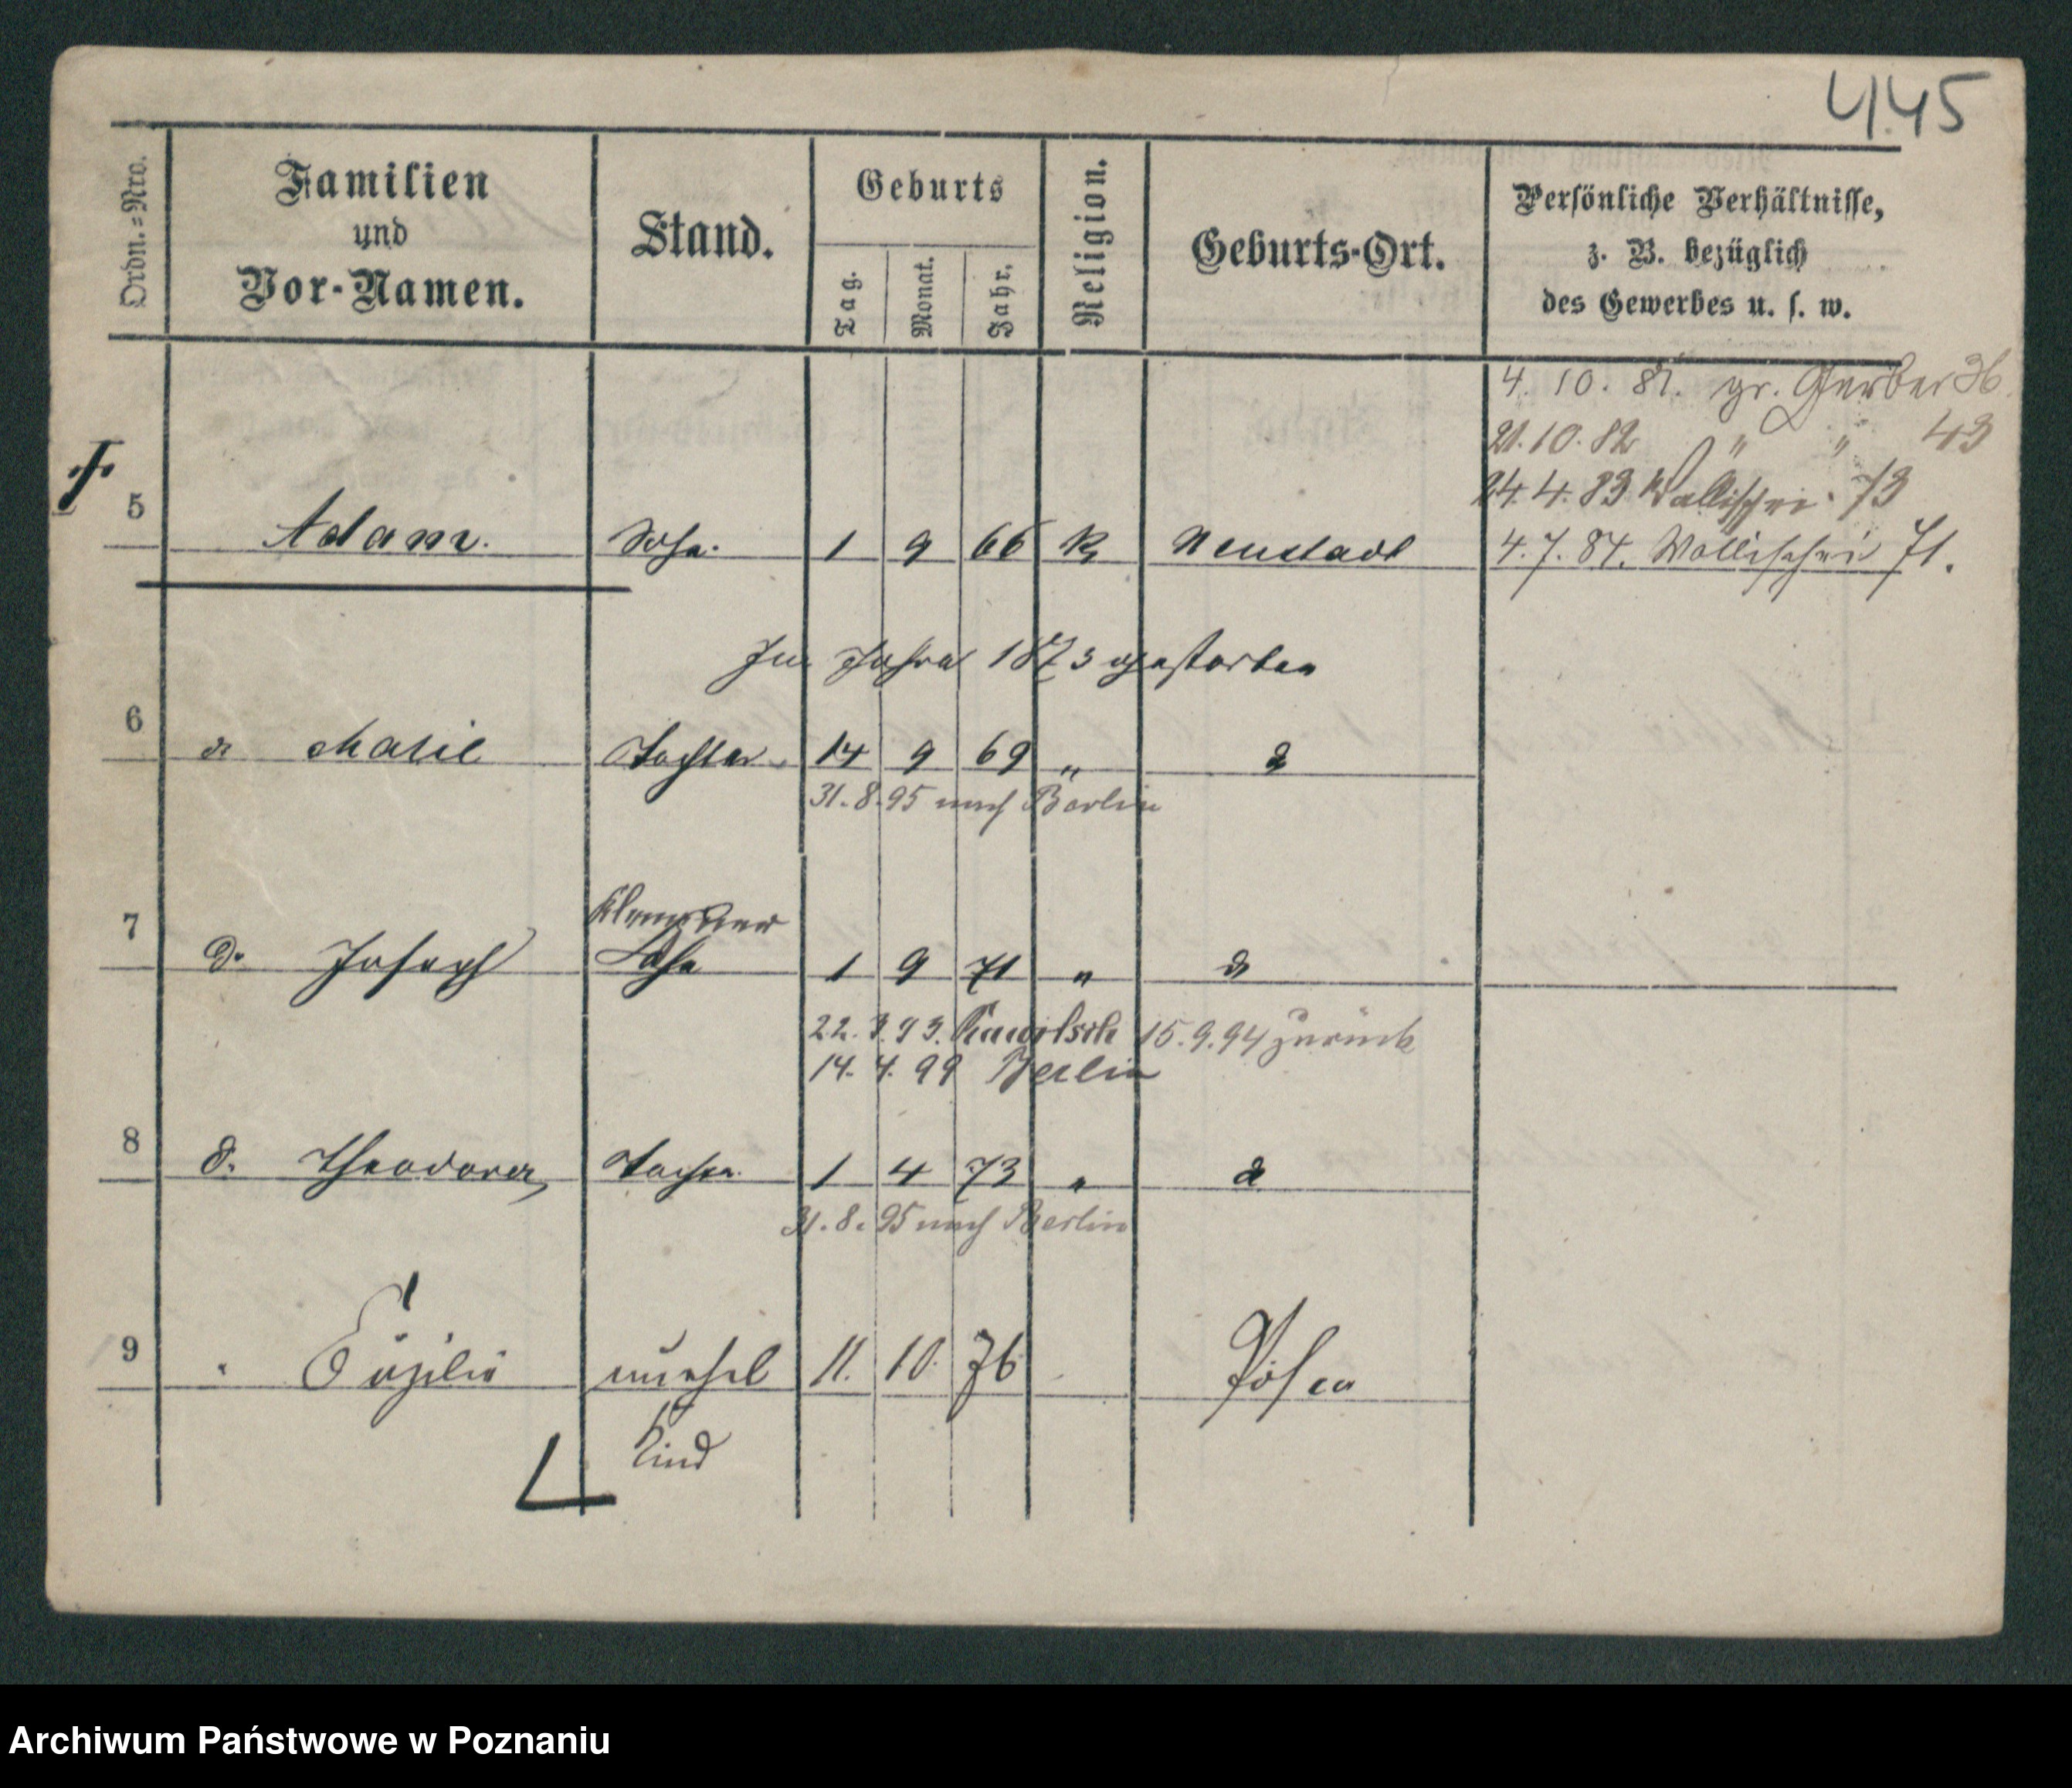 445
Ordn.=Nro.
Familien
und
Vor-Namen.
Stand.
Geburts
Tag.
Monat.
Jahr.
Religion.
Geburts-Ort.
Persönliche Verhältnisse,
z. B. bezüglich
des Gewerbes u. s. w.
4. 10. 81. gr. Gerber 36
21. 10. 82 " " 43
24. 4. 83 Wallischei 73
4. 7. 84. Wallischei 71.
5 Adam. Sohn. 1 9 66 K Neustadt
Im Jahre 1873 gestorben
6 do Marie Tochter 14 9 69 " do
31. 8. 95 nach Berlin
Klempner
7 do Joseph Sohn 1 9 71 " do
22. 3. 93. Rawitsch 15. 9. 94 zurück
14. 4. 99 Berlin
8 do Theodora Tochter 1 4 73 " do
31. 8. 95 nach Berlin
9 " unehel 11. 10. 76 Posen
Kind
Archiwum Państwowe w Poznaniu